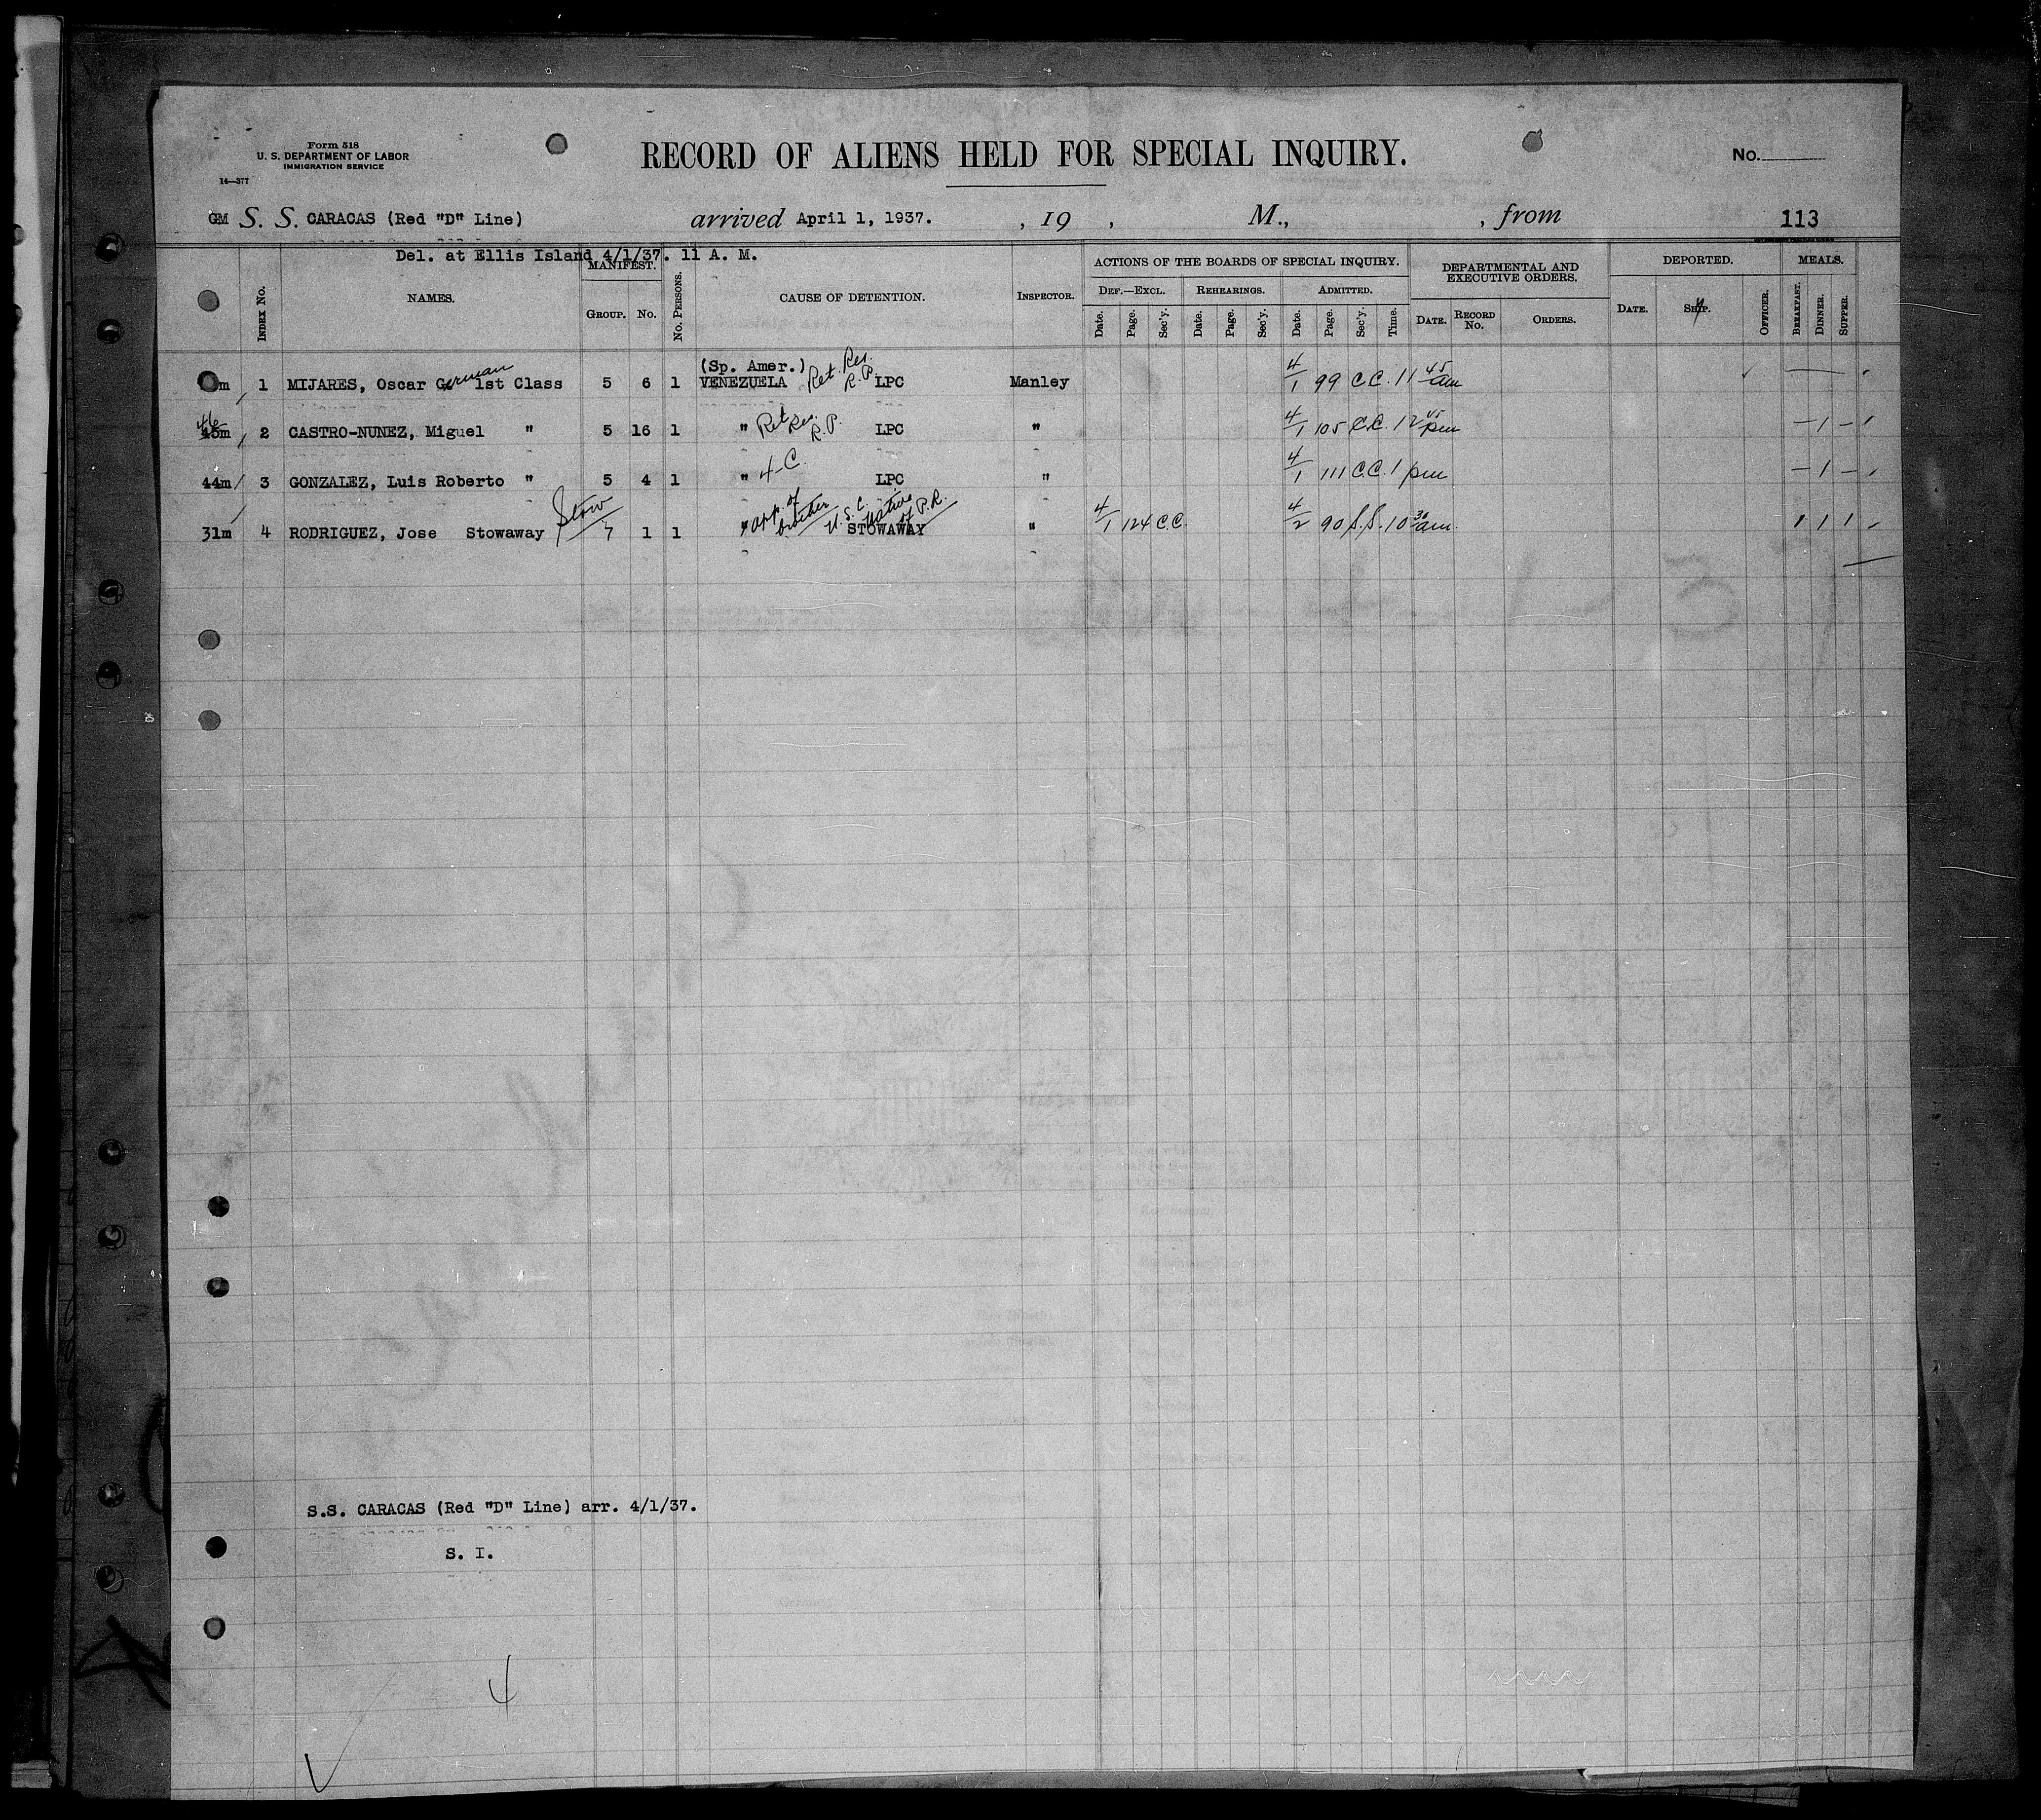 Form 518
U. S. DEPARTMENT OF LABOR
IMMIGRATION SERVICE
14—377
RECORD OF ALIENS HELD FOR SPECIAL INQUIRY.
No.
GM S. S. CARACAS (Red "D" Line) arrived April 1, 1937. , 19 , M., , from 113
Del. at Ellis Island 4/1/37. 11 A. M.
INDEX No. NAMES. MANIFEST. GROUP. No. No. PERSONS. CAUSE OF DETENTION. INSPECTOR. ACTIONS OF THE BOARDS OF SPECIAL INQUIRY. DEPARTMENTAL AND EXECUTIVE ORDERS. DEPORTED. MEALS.
DEF.—EXCL. REHEARINGS. ADMITTED.
Date. Page. Sec'y. Date. Page. Sec'y. Date. Page. Sec'y. Time. DATE. RECORD No. ORDERS. DATE. SHIP. OFFICER. BREAKFAST. DINNER. SUPPER.
(Sp. Amer.)
m 1 MIJARES, Oscar German 1st Class 5 6 1 VENEZUELA Ret. Res. R.P. LPC Manley 4/1 99 C.C. 11 45 am
46
45m 2 CASTRO-NUNEZ, Miguel " 5 16 1 " Ret Res. R.P. LPC " 4/1 105 C.C. 12 45 pm — 1 —
44m 3 GONZALEZ, Luis Roberto " 5 4 1 " 4-C. LPC " 4/1 111 C.C. 1 pm — 1 —
31m 4 RODRIGUEZ, Jose Stowaway Stow 7 1 1 " app. of brother U.S.C. Native of P.R. STOWAWAY " 4/1 124 C.C. 4/2 90 S.S. 10 30 am. 1 1 1
S.S. CARACAS (Red "D" Line) arr. 4/1/37.
S. I.
4